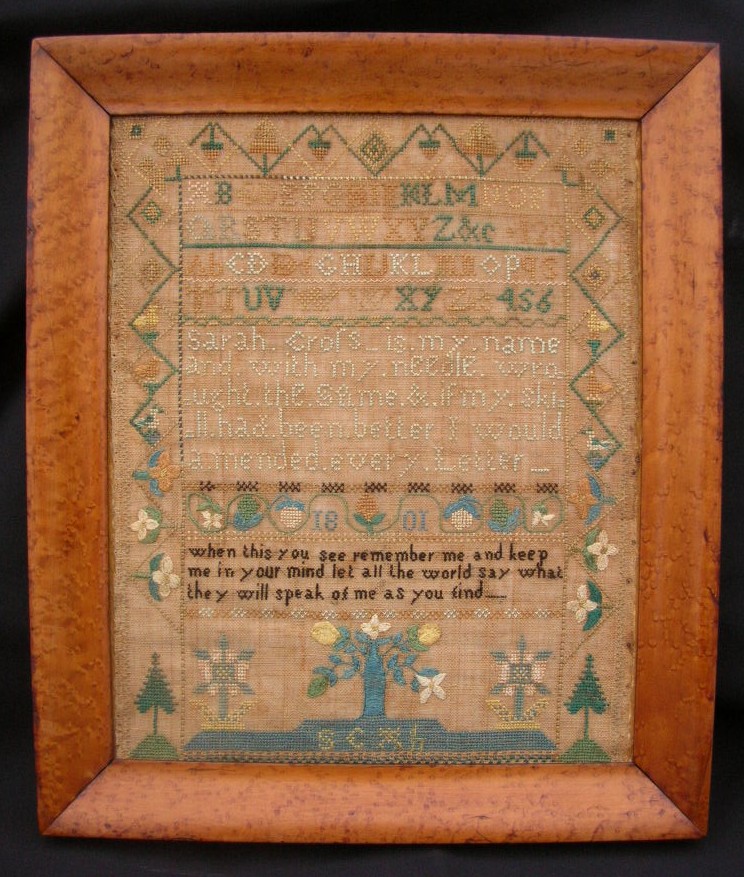 B KLM
QRSTU W XYZ&c
CD GH KL OP
TUV XYZ 456
Sarah. Crofs_is. my. name
and. with my. needle. wro
ught. the. same. &. if my. ski
ll had. been. better I would
amended. every. Letter_
1801
when this you see remember me and keep
me in your mind let all the world say what
they will speak of me as you find